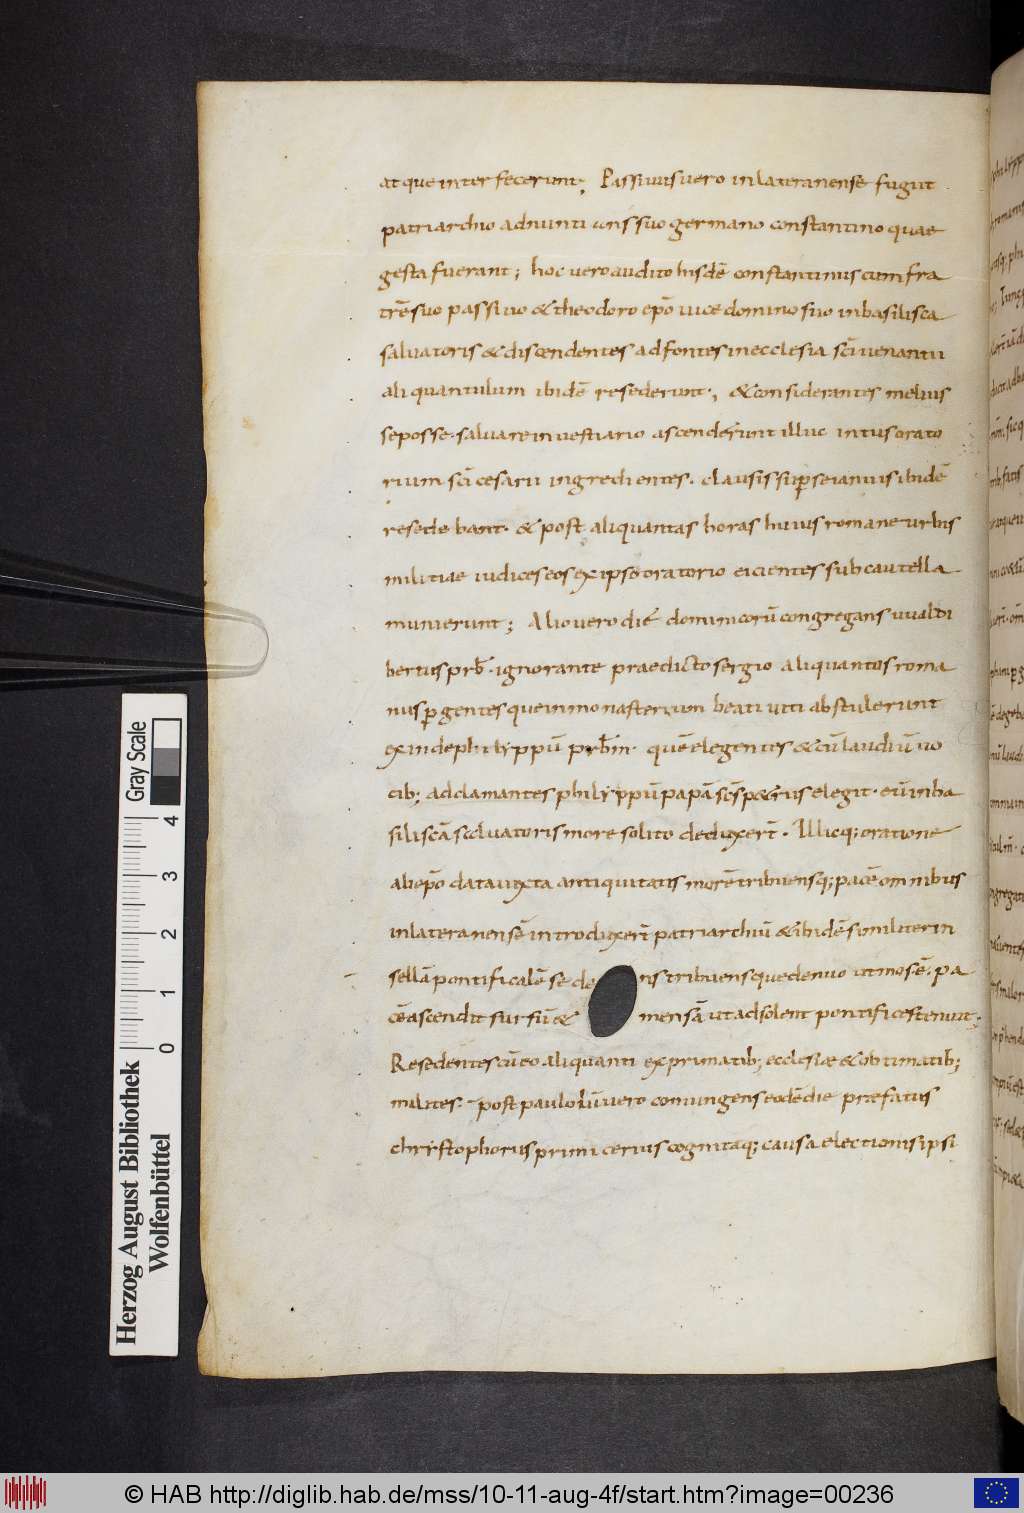 atque interfecerunt; Passiuus uero in lateranense fugiit
patriarchio adnuntians suo germano constantino quae
gesta fuerant; hoc uero audito hisdē constantinus cum fra
trē suo passiuo & theodoro ep̄o uice domino suo in basilisca
saluatoris & discendentes ad fontes in ecclesia sc̄i uenantii
aliquantulum ibidē resederunt; & considerantes melius
se posse saluare in uestiario ascenderunt illuc intus orato
rium sc̄i cesarii ingredientes. clausis sup̱ se ianuis ibidē
resedebant. & post aliquantas horas huius romane urbis
militiae iudices eos ex ipso oratorio eicientes sub cautella
munierunt; Alio uero diē dominicorū congregans uualdi
bertus prb̄. ignorante praedicto sergio aliquantos roma
nus p̱gentes que in monasterium beati uiti abstulerunt
exinde philyppū prb̄m. quē elegentes & cū laudiū uo
cib; adclamantes philyppū papā sc̄s p&rus elegit. eū in ba
siliscā saluatoris more solito deduxer̄t. Illicq; oratione
ab ep̄o data iuxta antiquitatis morē tribuensq; pacē omnibus
in lateranensē introduxer̄t patriarchiū & ibidē similiter in
sellā pontificalē sedens tribuensque denuo ut mos ē. pa
cē ascendit sursū & mensā ut adsolent pontifices tenuit;
Resedentes cū eo aliquanti ex primatib; ecclesiæ & obtimatib;
milites. post paulolū uero coniungens eodē die præfatus
chrystophorus primicerius cognitaq; causa electionis ipsi
Gray Scale
0 1 2 3 4
Herzog August Bibliothek
Wolfenbüttel
© HAB http://diglib.hab.de/mss/10-11-aug-4f/start.htm?image=00236